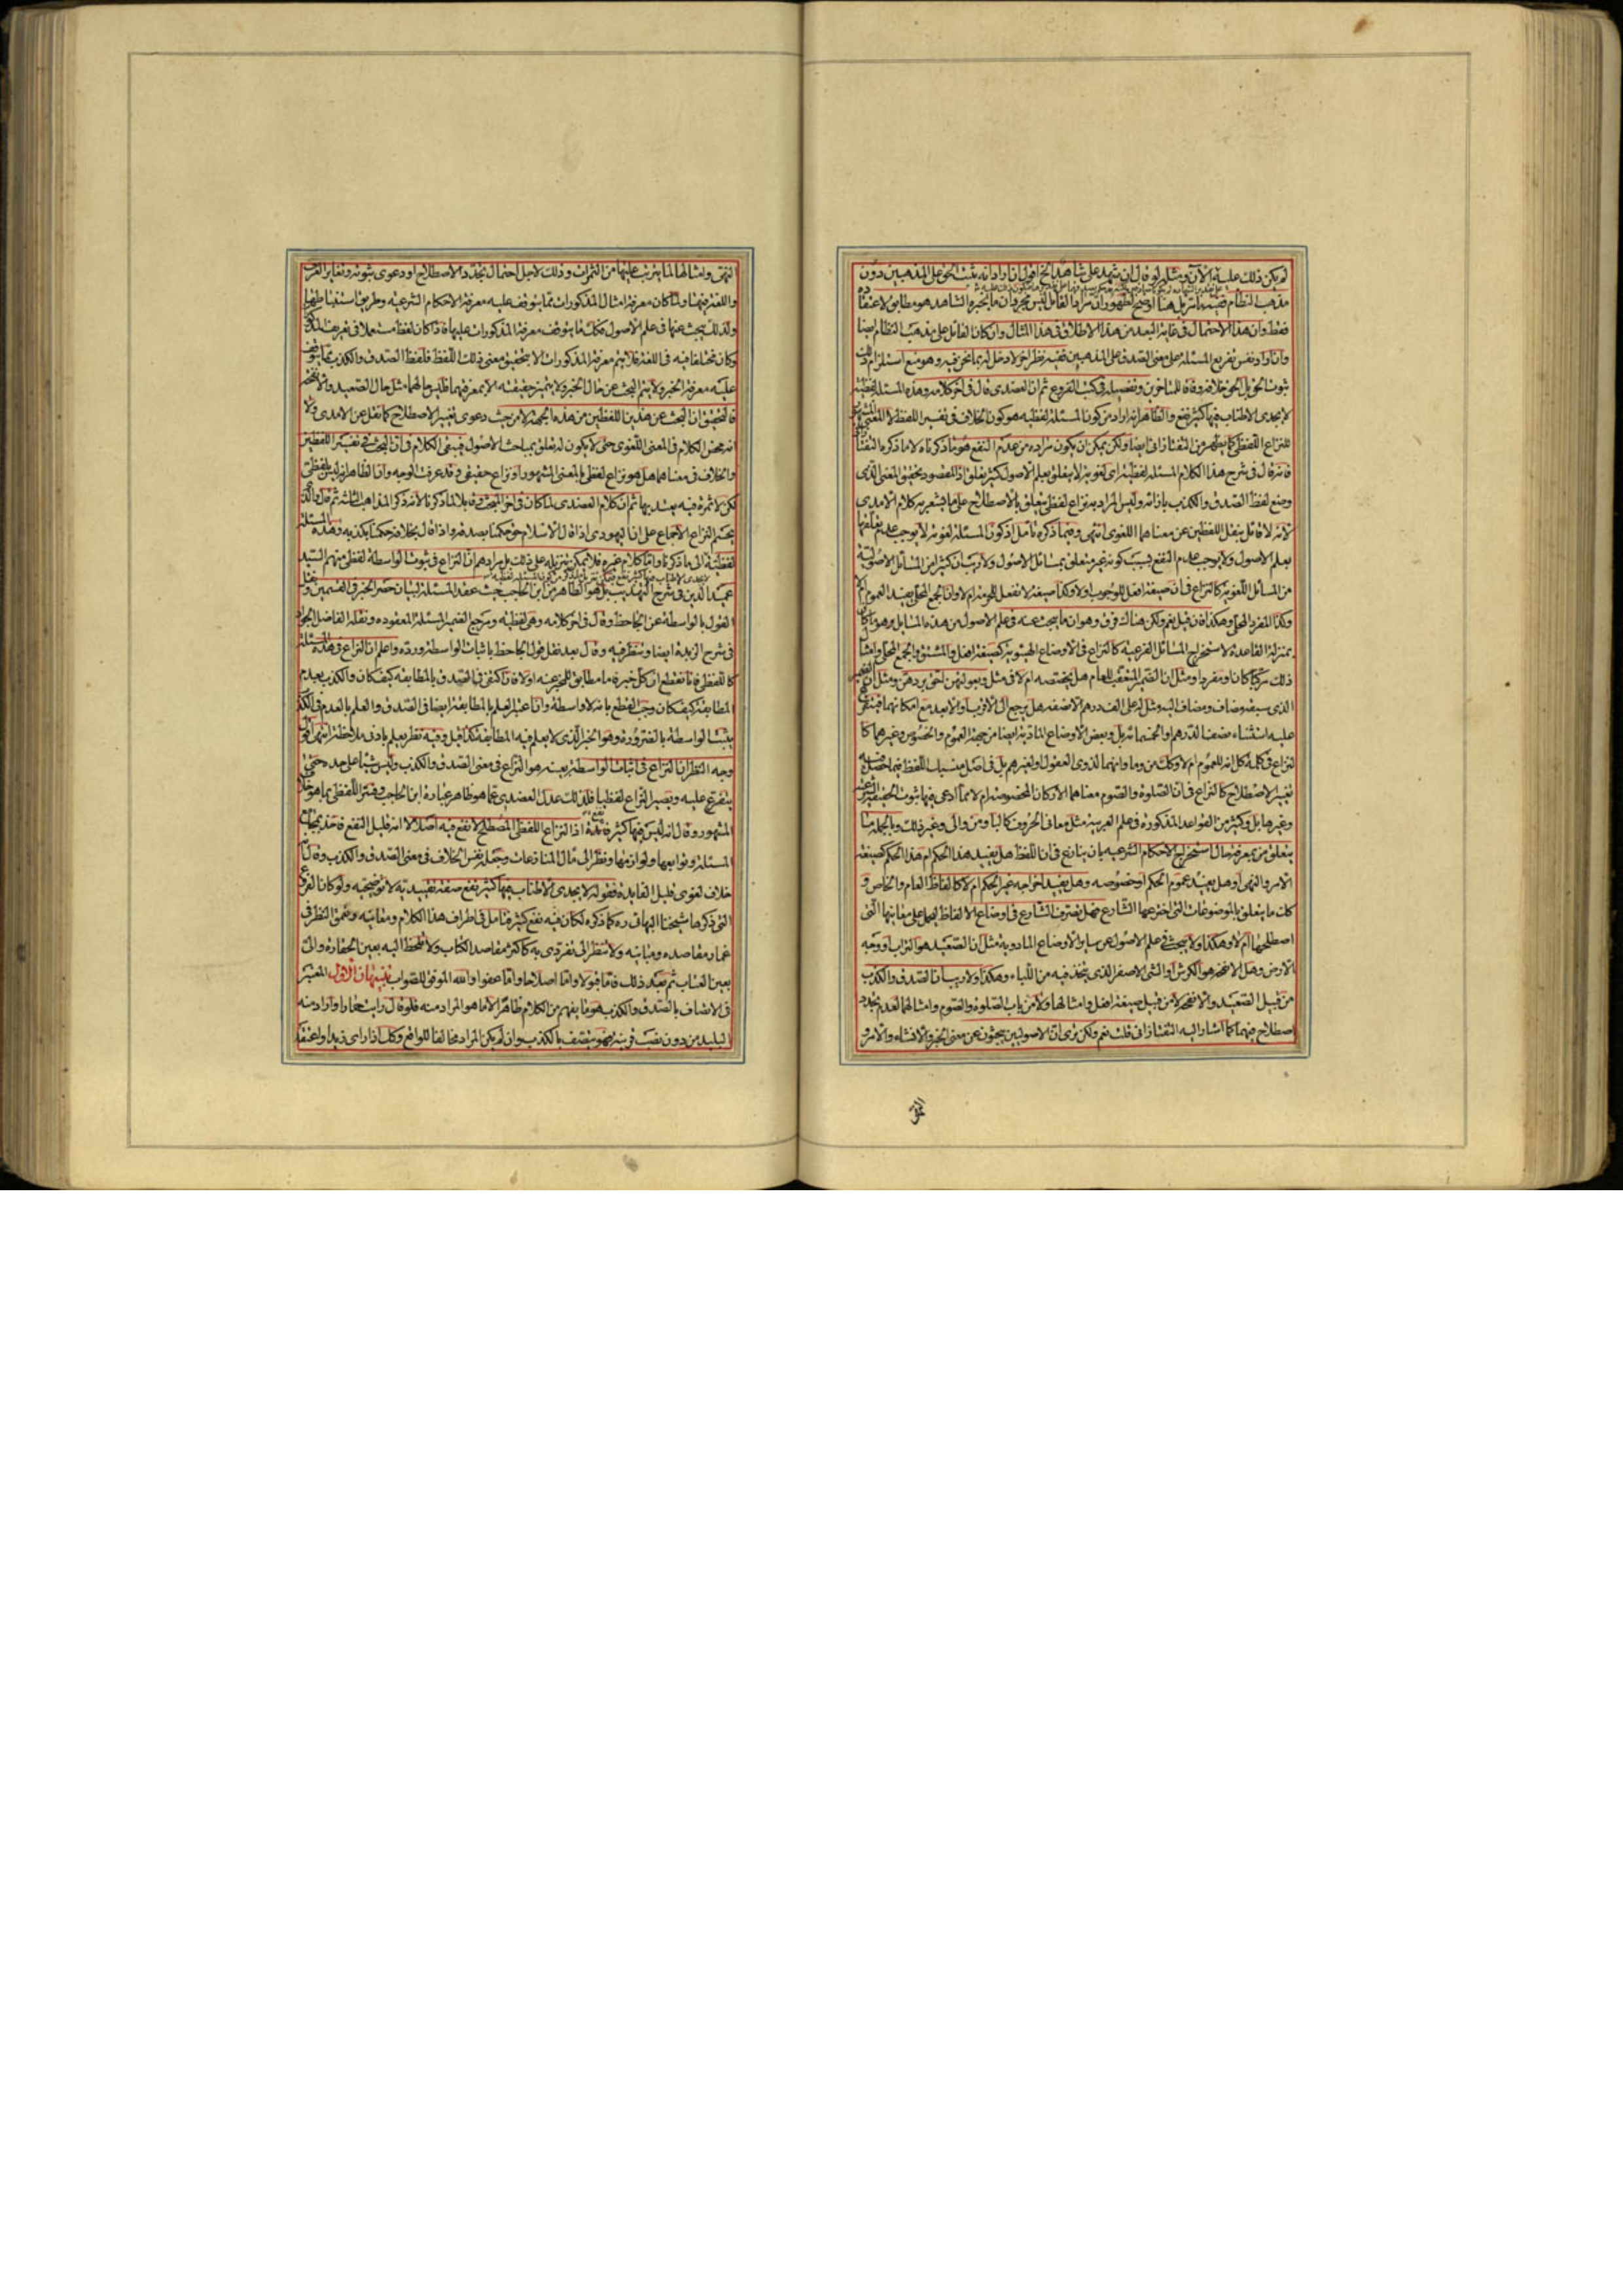 لم يكن ذلك عليه الآن ومثله لو قال ان شهد على شاهد الخ اقول ان اراد انه يثبت الحق على المذهبين دون
مذهب النظام ففيه انا نريل هنا اوضح لظهور ان مراد القائل ليس مجرد ان ما يخبره الشاهد هو مطابق لاعتقاده
فقط وان هذا الاحتمال في غاية البعد من هذا الاطلاق في هذا المثال وان كان القائل على مذهب النظام ايضا
وان اراد نفس تفريع المسئلة على معنى الصدق على المذهبين ففيه نظر اخر لا دخل له بما نحن فيه وهو منع استلزام ذلك
ثبوت الحق بل الحق خلافه وفاقا للمتاخرين وتفصيله في كتب الفروع ثم ان العضدي قال في اخر كلامه وهذه المسئلة لفظية
لا يجدي الاطناب فيها كثير نفع والظاهر انه اراد من كون المسئلة لفظية هو كون الخلاف في تفسير اللفظ لا المعنى المشهور
للنزاع اللفظي كما يظهر من التفتازاني ايضا ولكن يمكن ان يكون مراده من عدم النفع هو ما ذكرناه لا ما ذكره التفتا
فانه قال في شرح هذا الكلام المسئلة لفظية اي لغوية لا يتعلق بعلم الاصول كثير تعلق اذ المقصود تحقيق المعنى الذي
وضع لفظ الصدق والكذب بازائه وليس المراد به نزاع لفظي يتعلق بالاصطلاح على ما يشعر به كلام الامدي
لانه لا قائل بنقل اللفظين عن معناهما اللغوي انتهى وفيما ذكره تامل اذ كون المسئلة لغوية لا يوجب عدم تعلقها
بعلم الاصول ولا يوجب عدم النفع بسبب كونه غير متعلق بمسائل الاصول ولا ريب ان كثيرا من المسائل الاصولية
من المسائل اللغوية كالنزاع في ان صيغة افعل للوجوب اولا وكذا صيغة لا تفعل للحرمة ام لا وان الجمع المحلى يفيد العموم ام لا
وكذا المفرد المحلى وهكذا فان قيل نعم ولكن هناك فرق وهو ان ما يبحث عنه في علم الاصول من هذه المسايل هو ما كان
بمنزلة القاعدة لاستخراج المسائل الفرعية كالنزاع في الاوضاع الهيئوية كصيغة افعل والمشتق والجمع المحلى وامثال
ذلك مركبا كان او مفردا ومثل ان الضمير المتعقب للعام هل يخصصه ام لا في مثل وبعولتهن احق بردهن ومثل ان الضمير
الذي سبقه مضاف ومضاف اليه مثل له على الف درهم الا نصفه هل يرجع الى الاقرب او الابعد مع امكانهما فيتفرع
عليه استثناء نصف الدرهم او الخمسمائة بل وبعض الاوضاع المادية ايضا من جهة العموم والخصوص وغيرهما كا
لنزاع في كلمة كل انه للعموم ام لا وكذا من وما وانهما لذوي العقول او لغيرهم بل في اصل مسميات اللفظ فيما حصل فيه
تغيير الاصطلاح كالنزاع في ان الصلوة والصوم معناهما الاركان المخصوصة ام لا مما ادعي فيها ثبوت الحقيقة الشرعية
وغيرها بل وكثير من القواعد المذكورة في علم العربية مثل معاني الحروف كالباء ومن والى وغير ذلك وبالجملة ما
يتعلق من بمعرفة حال استخراج الاحكام الشرعية بان ينازع في ان اللفظ هل يفيد هذا الحكم ام هذا الحكم كصيغة
الامر والنهي او هل يفيد عموم الحكم او خصوصه وهل يفيد اخراجه عن الحكم ام لا كالفاظ العام والخاص و
كذا ما يتعلق بالموضوعات التي اخترعها الشارع فهل تصرف الشارع في اوضاع الالفاظ ليحمل على معانيها التي
اصطلحها ام لا وهكذا ولا يبحث في علم الاصول عن ساير الاوضاع المادوية مثل ان الصعيد هو التراب او وجه
الارض وهل الانفحة هو الكرش او الشئ الاصفر الذي يتخذ فيه من اللباء وهكذا ولا ريب ان الصدق والكذب
من قبيل الصعيد والانفحة لا من قبيل صيغة افعل وامثالها ولا من باب الصلوة والصوم وامثالهما لعدم تجدد
اصطلاح فيهما كما اشار اليه التفتازاني قلت نعم ولكن نرى ان الاصوليين يبحثون عن معنى الخبر والانشاء والامر و
النهي
النهي وامثالها لما يترتب عليها من الثمرات وذلك لاجل احتمال تجدد الاصطلاح او دعوى ثبوته وتغاير العرف
واللغة فيها ولما كان معرفة امثال المذكورات مما يتوقف عليه معرفة الاحكام الشرعية وطريق استنباطها
ولذلك يبحث عنها في علم الاصول فكذلك ما يتوقف معرفة المذكورات عليها فاذا كان لفظ مستعملا في تعريف المذكور
وكان مختلفا فيه في اللغة فلا يتم معرفة المذكورات الا بتحقيق معنى ذلك اللفظ فلفظ الصدق والكذب مما يتوقف
عليه معرفة الخبر ولا يتم البحث عن حال الخبر ولا يتميز حقيقته الا بمعرفتهما فليس حالهما مثل حال الصعيد والانفحة
فالتحقيق ان البحث عن هذين اللفظين من هذه الجهة لا من حيث دعوى تغيير الاصطلاح كما نقل عن الامدي ولا
انه محض الكلام في المعنى اللغوي حتى لا يكون له تعلق بمباحث الاصول فبقي الكلام في ان البحث في تفسير اللفظين
والخلاف في معناهما هل هو نزاع لفظي بالمعنى المشهور او نزاع حقيقي وقد عرفت الوجه وان الظاهر انه ليس بلفظي
لكن لا ثمرة فيه يعتد بها ثم ان كلام العضدي لما كان في اخر البحث قابلا لما ذكرنا لانه ذكر المذاهب الثلثة ثم قال والذي
يحسم النزاع الاجماع على ان اليهودي اذا قال الاسلام حق حكمنا بصدقه واذا قال بخلافه حكمنا بكذبه وهذه المسئلة
لفظية الى ما ذكرنا واما كلام غيره فلا يمكن تنزيله على ذلك بل مرادهم ان النزاع في ثبوت الواسطة لفظي منهم السيد
عميد الدين في شرح التهذيب بل هو الظاهر من ابن الحاجب حيث عقد المسئلة لبيان حصر الخبر في القسمين ونقل
القول بالواسطة عن الجاحظ وقال في اخر كلامه وهي لفظية ومرجع الضمير المسئلة المعقودة ونقله الفاضل الجواد
في شرح الزبدة ايضا ونظر فيه وقال بعد نقل قول الجاحظ باثبات الواسطة ورده واعلم ان النزاع في هذه المسئلة
كاللفظي فانا نقطع ان كل خبر فاما مطابق للمخبر عنه اولا فان اكتفي في الصدق بالمطابقة كيف كان والكذب بعدم
المطابقة كيف كان وجب القطع بانه لا واسطة وان اعتبر العلم بالمطابقة ايضا في الصدق والعلم بالعدم في الكذب
يثبت الواسطة بالضرورة وهو الخبر الذي لا يعلم فيه المطابقة كذا قيل وفيه نظر يعلم بادنى ملاحظة انتهى اقول
وجه النظر ان النزاع في اثبات الواسطة بعينه هو النزاع في معنى الصدق والكذب وليس شيئا على حده حتى
يتفرع عليه ويصير النزاع لفظيا فلذلك عدل العضدي عما هو ظاهر عبارة ابن الحاجب وفسر اللفظي بما هو خلاف
المشهور وقال انه ليس فيها كثير فائدة اذ النزاع اللفظي المصطلح لا نفع فيه اصلا لا انه قليل النفع فاخذ بمجامع
المسئلة وتوابعها ولوازمها ونظر الى مآل المنازعات وجعل نفس الخلاف في معنى الصدق والكذب وقال انه
خلاف لغوي قليل الفايدة فقوله لا يجدي الاطناب فيها كثير نفع صفة تقييدية لا توضيحية ولو كان الفروع
التي ذكرها شيخنا البهائي ره كما ذكره لكان فيه نفع كثير فتامل في اطراف هذا الكلام ومعانيه وعمق النظر في
غمار مقاصده ومبانيه ولا تنظر الى تفردي به كاكثر مقاصد الكتاب ولا تلحظ اليه بعين الحقارة والى
بعين العتاب ثم بعد ذلك فاما قبولا واما اصلاحا واما عفوا والله الموفق للصواب تنبيهان الاول المعتبر
في الاتصاف بالصدق والكذب هو ما يفهم من الكلام ظاهرا لا ما هو المراد منه فلو قال رايت حمارا واراد منه
البليد من دون نصب قرينة فهو يتصف بالكذب وان لم يكن المراد مخالفا للواقع وكذا اذا راى زيدا واعتقد